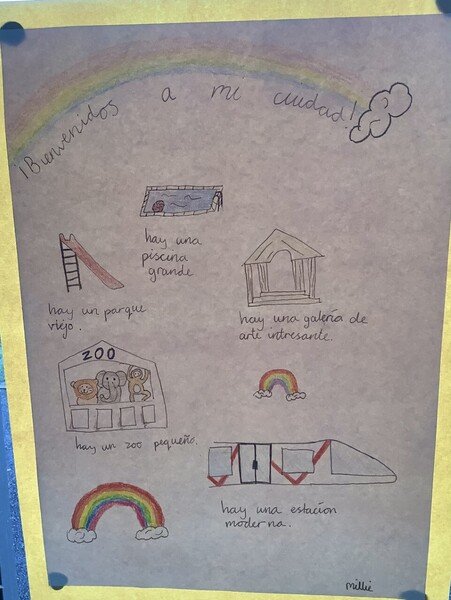 ¡Bienvenidos a mi cuidad!
hay una
piscina
grande
hay un parque
viejo.
hay una galería de
arte intresante.
ZOO
hay un zoo pequeño.
hay una estacíon
moderna.
millie